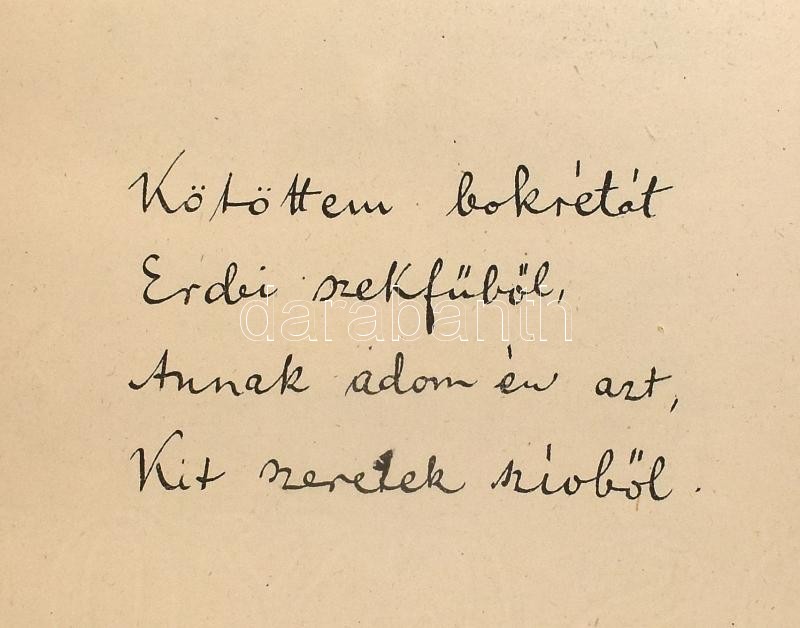 Kötöttem bokrétát
Erdei szekfűből,
darabanth
Annak adom én azt,
Kit szeretek szívből.